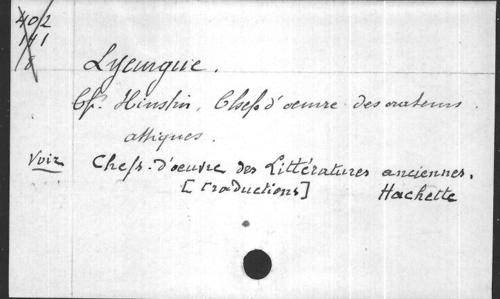 402
141
8
Lycurgue.
Cf. Hinstin, Chefs d'oeuvre des orateurs
attiques.
Voir Chefs-d'oeuvre des Littératures anciennes.
[Traductions] Hachette